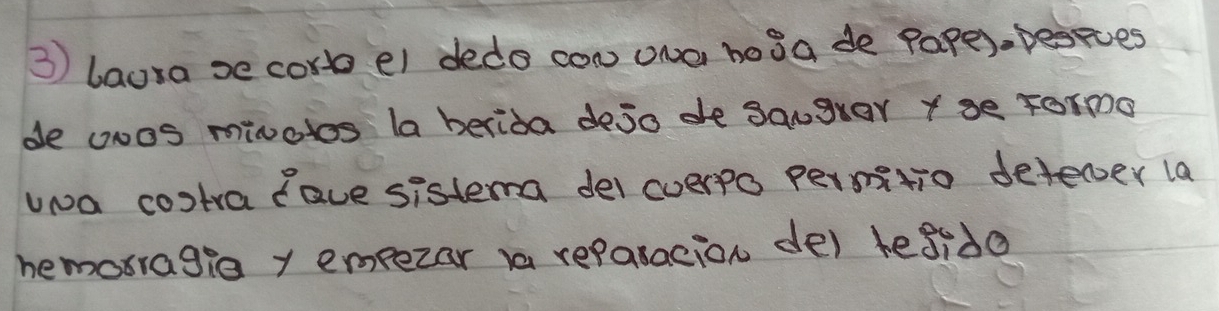 3) Laura se corto el dedo con una hoja de Papel. Despues
de unos minutos la herida dejo de sangrar y se Formo
una costra ¿que sistema del cuerpo permitio detener la
hemorragia y empezar la reparacion del tejido